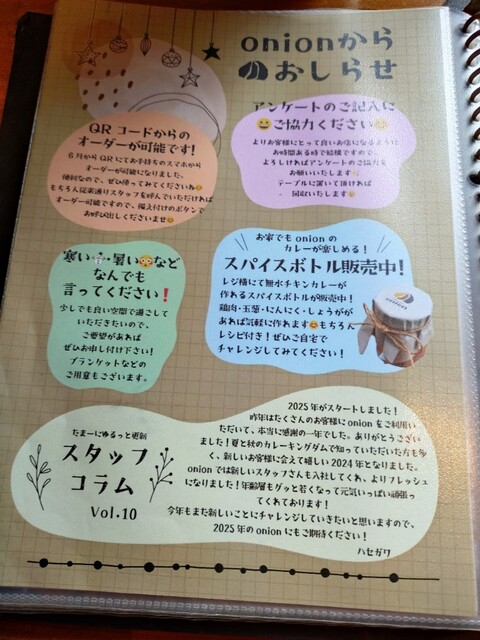 onionから
おしらせ
QRコードからの
オーダーが可能です!
6月からQRにてお手持ちのスマホから
オーダーが可能になりました。
便利なので、ぜひ使ってみてくださいね😊
もちろん従来通りスタッフを呼んでいただければ
オーダー可能ですので、備え付けのボタンで
お呼び出しくださいませ😊
アンケートのご記入に
😀ご協力ください😊
よりお客様にとって良いお店になるように
お時間ある時で結構ですので、
よろしければアンケートのご協力を
お願いいたします✨
テーブルに置いて頂ければ
回収いたします😊
寒い⛄・暑い🥵など
なんでも
言ってください❗
少しでも良い空間で過ごして
いただきたいので、
ご要望があれば
ぜひお申し付け下さい!
ブランケットなどの
ご用意もございます。
お家でも onion の
カレーが楽しめる!
スパイスボトル販売中!
レジ横にて無水チキンカレーが
作れるスパイスボトルが販売中!
鶏肉・玉葱・にんにく・しょうがが
あれば気軽に作れます😊もちろん
レシピ付き!ぜひご自宅で
チャレンジしてみてください!
onion
たまーにゆるっと更新
スタッフ
コラム
Vol.10
2025年がスタートしました!
昨年はたくさんのお客様に onion をご利用い
ただいて、本当に感謝の一年でした。ありがとうござい
ました!夏と秋のカレーキングダムで知っていただいた方も多
く、新しいお客様に会えて嬉しい 2024 年となりました。
onion では新しいスタッフさんも入社してくれ、よりフレッシュ
になりました!年齢層もグッと若くなって元気いっぱい頑張っ
てくれております!
今年もまた新しいことにチャレンジしていきたいと思いますので、
2025 年の onion にもご期待ください!
ハセガワ